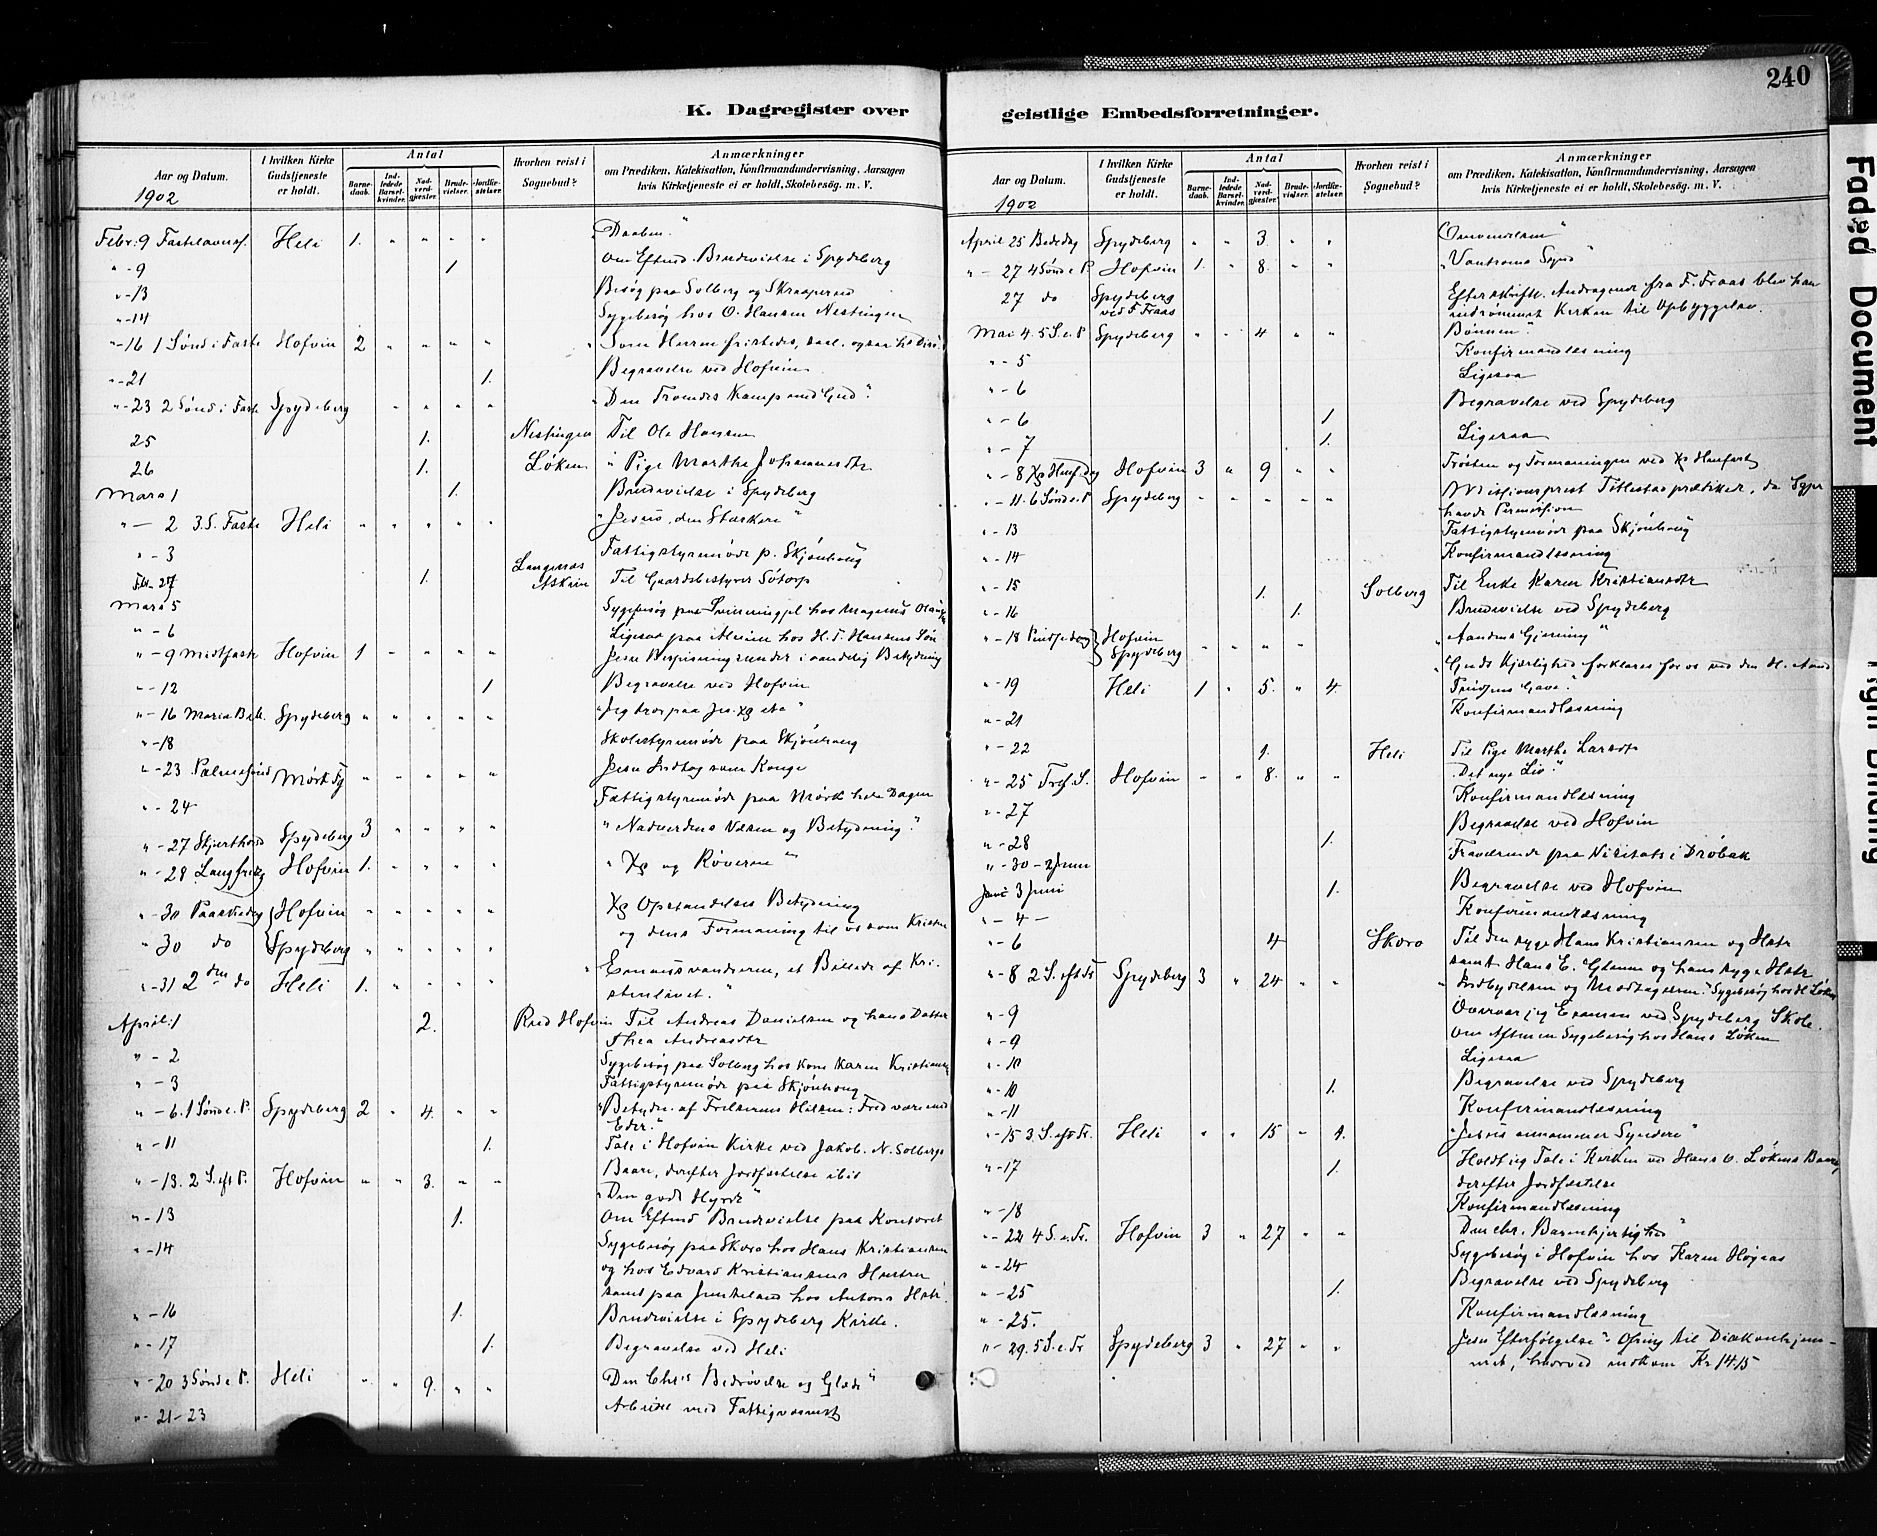 240
K. Dagregister over
Aar og Datum.
I hvilken Kirke Gudstjeneste er holdt.
Antal
Barnedaab.
Indledede Barselkvinder.
Nadverdgjæster.
Brudevielser.
Jordfæstelser.
Hvorhen reist i Sognebud?
Anmærkninger
om Prædiken, Katekisation, Konfirmandundervisning, Aarsagen
hvis Kirketjeneste ei er holdt, Skolebesøg. m. V.
1902
Febr: 9 Fastelavns. Heli 1. " " " " "Daaben."
" - 9 1 Om Eftmd. Brudevielse i Spydeberg
" - 13 Besøg paa Solberg og
" - 14 Sygebesøg hos O. Hansen Nestingen
" - 16 1 Sønd i Faste Hofvin 2 " " " "
" - 21 1. Begravelse ved Hofvin
" - 23 2 Sønd i Faste Spydeberg " " " " "Den Troendes Kamp med Gud".
25 1. Nestingen Til Ole Hansen
26 1. Løken " Pige Marthe Johannesdtr
Mars 1 1. Brudevielse i Spydeberg
" - 2 3 S. Faste Heli " " " " " "Jesus, den Stærkere"
" - 3 Fattigstyremøde p. Skjønhaug
Feb. 27 1. Langenæs Askim Til Gaardsbestyrer Søtorp
Mars 5 Sygebesøg paa hos Magnus
" - 6 Ligesaa paa hos H. Hansens Søn
" - 9 Midtfaste Hofvin 1 " " " " Jesu Bespisningsunder i aandelig Betydning
" - 12 1 Begravelse ved Hofvin
" - 16 Maria Beb. Spydeberg " " " " " "Jeg tror paa Jes. Xs etc"
" - 18 Skolestyremøde paa Skjønhaug
" - 23 Palmesønd Mørk Jesu Indtog som Konge
" - 24 Fattigstyremøde paa Mørk hele Dagen
" - 27 Skjærthorsd Spydeberg 3 " " " " "Nadverdens Væsen og Betydning."
" - 28 Langfredg Hofvin 1. " " " " "Xs og Røveren"
" - 30 Paaskedag Hofvin " " " " " Xs Opstandelses Betydning
" 30 do Spydeberg " " " " " og dens Formaning til os som Kristne
" - 31 2den do Heli 1. " " " " "Emausvandreren, et Billede af Kri-
stenlivet."
April 1 2. Rud Hofvin Til Andreas Danielsen og hans Datter
Thea Andreasdtr
" - 2 Sygebesøg paa Solberg hos Kone Karen
" - 3 Fattigstyremøde paa Skjønhaug
" - 6. 1 Sønd e. P. Spydeberg 2 " 4. " " "Betydn. af Frelserens Hilsen: Fred være med
Eder."
" - 11 1. Tale i Hofvin Kirke ved Jakob N. Solbergs
Baare, derefter Jordfæstelse ibid
" - 13. 2 S. eft P. Hofvin " " 3. " " "Den gode Hyrde"
" - 13 1. Om Eftmd Brudevielse paa Kontoret
" - 14 Sygebesøg paa Skoro hos Hans Kristiansen
og hos Edvard Kristiansens Hustru
samt paa hos Antons Hstr.
" - 16 1. Brudevielse i Spydeberg Kirke.
" - 17 1. Begravelse ved Heli
" - 20 3 Sønd e. P. Heli " " 9. " " "Den Chr's Bedrøvelse og Glæde"
" - 21-23 Arbeidet med Fattigvæsenet
geistlige Embedsforretninger.
Aar og Datum.
I hvilken Kirke Gudstjeneste er holdt.
Antal
Barnedaab.
Indledede Barselkvinder.
Nadverdgjæster.
Brudevielser.
Jordfæstelser.
Hvorhen reist i Sognebud?
Anmærkninger
om Prædiken, Katekisation, Konfirmandundervisning, Aarsagen
hvis Kirketjeneste ei er holdt, Skolebesøg. m. V.
1902
April 25 Bededag Spydeberg " " 3. " " "Omvendelsen"
" - 27 4 Sønd e P. Hofvin 1. " 8. " " "Vantroens Synd"
27 do Spydeberg ved F. Fraas Efter skriftl. Andragende fra F. Fraas blev ham
indrømmet Kirken til Opbyggelse.
Mai 4. 5 S. e. P Spydeberg " " 4 " " Bønnen".
" - 5 Konfirmandlæsning
" - 6 Ligesaa
" - 6 1. Begravelse ved Spydeberg
" - 7 1. Ligesaa
" - 8 Xs Himf.dag Hofvin 3 " 9 " " Trøsten og Formaningen ved Xs Himfart
" - 11. 6 Sønd e. P Spydeberg " " " " " Missionsprest Tillestad prædikede, da Sgpr
havde Permission
" - 13 Fattigstyremøde paa Skjønhaug
" - 14 Konfirmandlæsning
" - 15 1. Solberg Til Enke Karen Kristiansdtr
" - 16 1. Brudevielse ved Spydeberg
" - 18 Pinsedag Hofvin Spydeberg " " " " "Aandens Gjerning"
"Guds Kjærlighed forklares for os ved den H. Aand
" - 19 Heli 1 " 5. " 4. Pindsens Gave."
" - 21 Konfirmandlæsning
" - 22 1. Heli Til Pige Marthe Larsdtr
" - 25 Tref. S. Hofvin " " 8. " " "Det nye Liv."
" - 27 Konfirmandlæsning
" - 28 1. Begravelse ved Hofvin
" - 30 - 2 Juni Fraværende paa Visitats i Drøbak
3 Juni 1. Begravelse ved Hofvin
" - 4 - Konfirmandlæsning
" - 6 4 Skoro Til den syge Hans Kristiansen og Hstr
samt Hans E. Glenne og hans syge Hstr
" - 8 2 S. eft Tr Spydeberg 3 " 24 " " "Indbydelsen og Modtagelsen." Sygebesøg hos H Løken
" - 9 Overvar jeg Examen ved Spydeberg Skole.
" - 9 Om Aftenen Sygebesøg hos Hans Løken
" - 10 Ligesaa
" - 10 1. Begravelse ved Spydeberg
" - 11 Konfirmandlæsning
" - 15 3. S. eft Tr. Heli " " 15 " 1. "Jesus annammer Syndere"
" - 17 1. Holdt jeg Tale i Kirken ved Hans O. Løkens Baare,
derefter Jordfæstelse
" - 18 Konfirmandlæsning
" - 22 4 S. e. Tr. Hofvin 3 " 27 " " Den chr. Barmhjertighed"
" - 24 Sygebesøg i Hofvin hos Karen Højaas
" - 25 1. Begravelse ved Spydeberg
" - 25. Konfirmandlæsning
" - 29. 5 S. e. Tr Spydeberg 3 " 27 " " Jesu Efterfølgelse". Ofring til Diakonhjem-
met, hvorved indkom Kr 14.15
Faded Document
Tight Binding